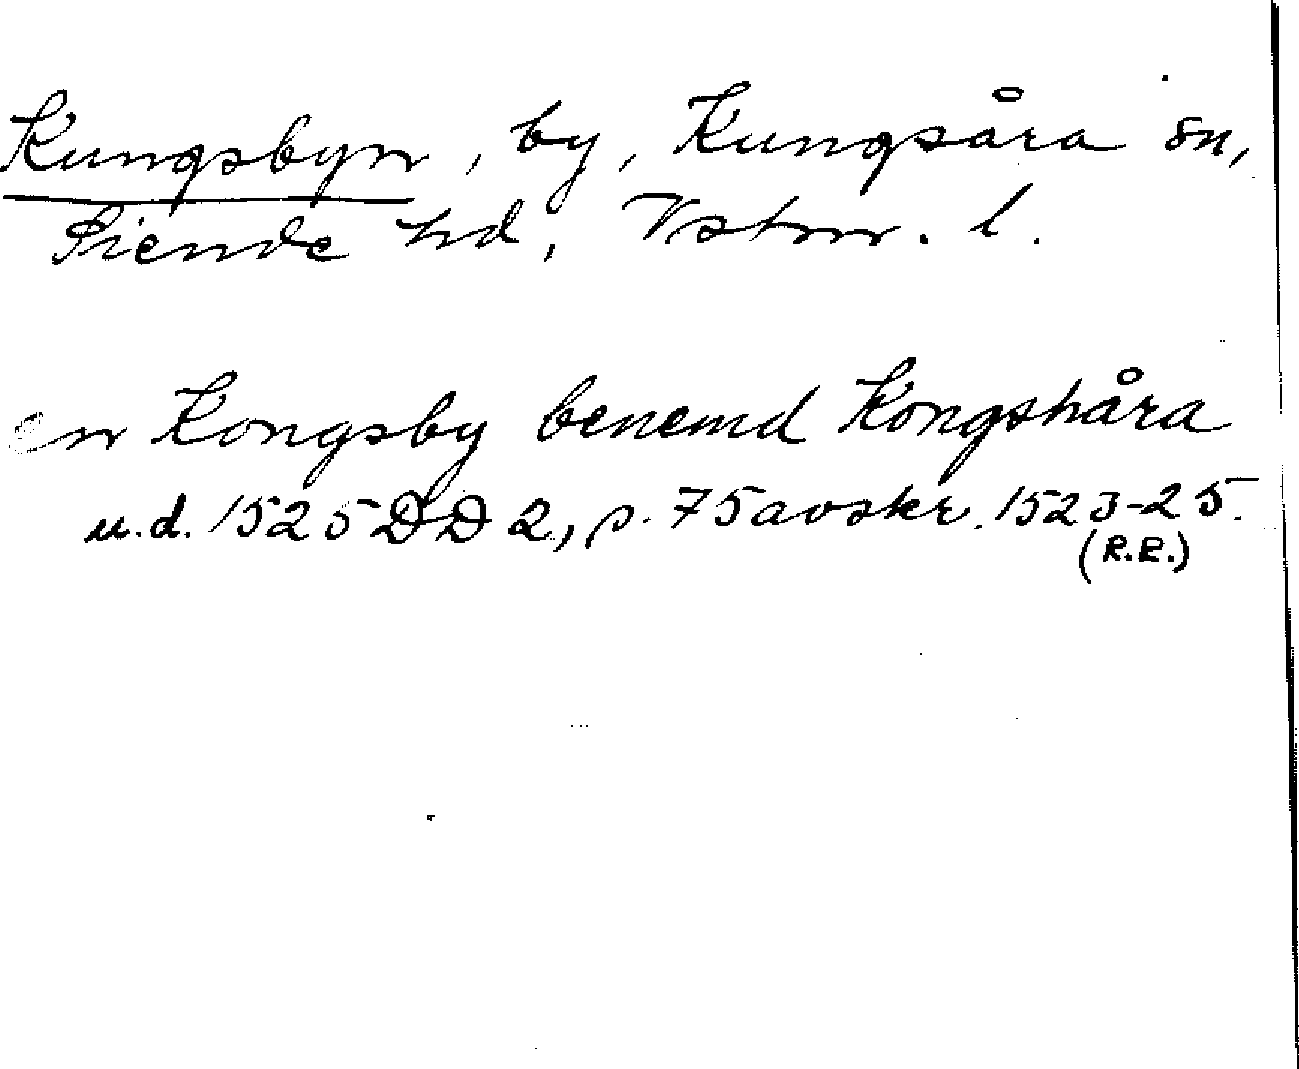 Kungsbyn, by, Kungsåra sn,
Siende hd, Vstm. l.
en Kongsby benemd Kongshåra
u.d. 1525 DD 2, p. 75 avskr. 1523-25.
(R.E.)